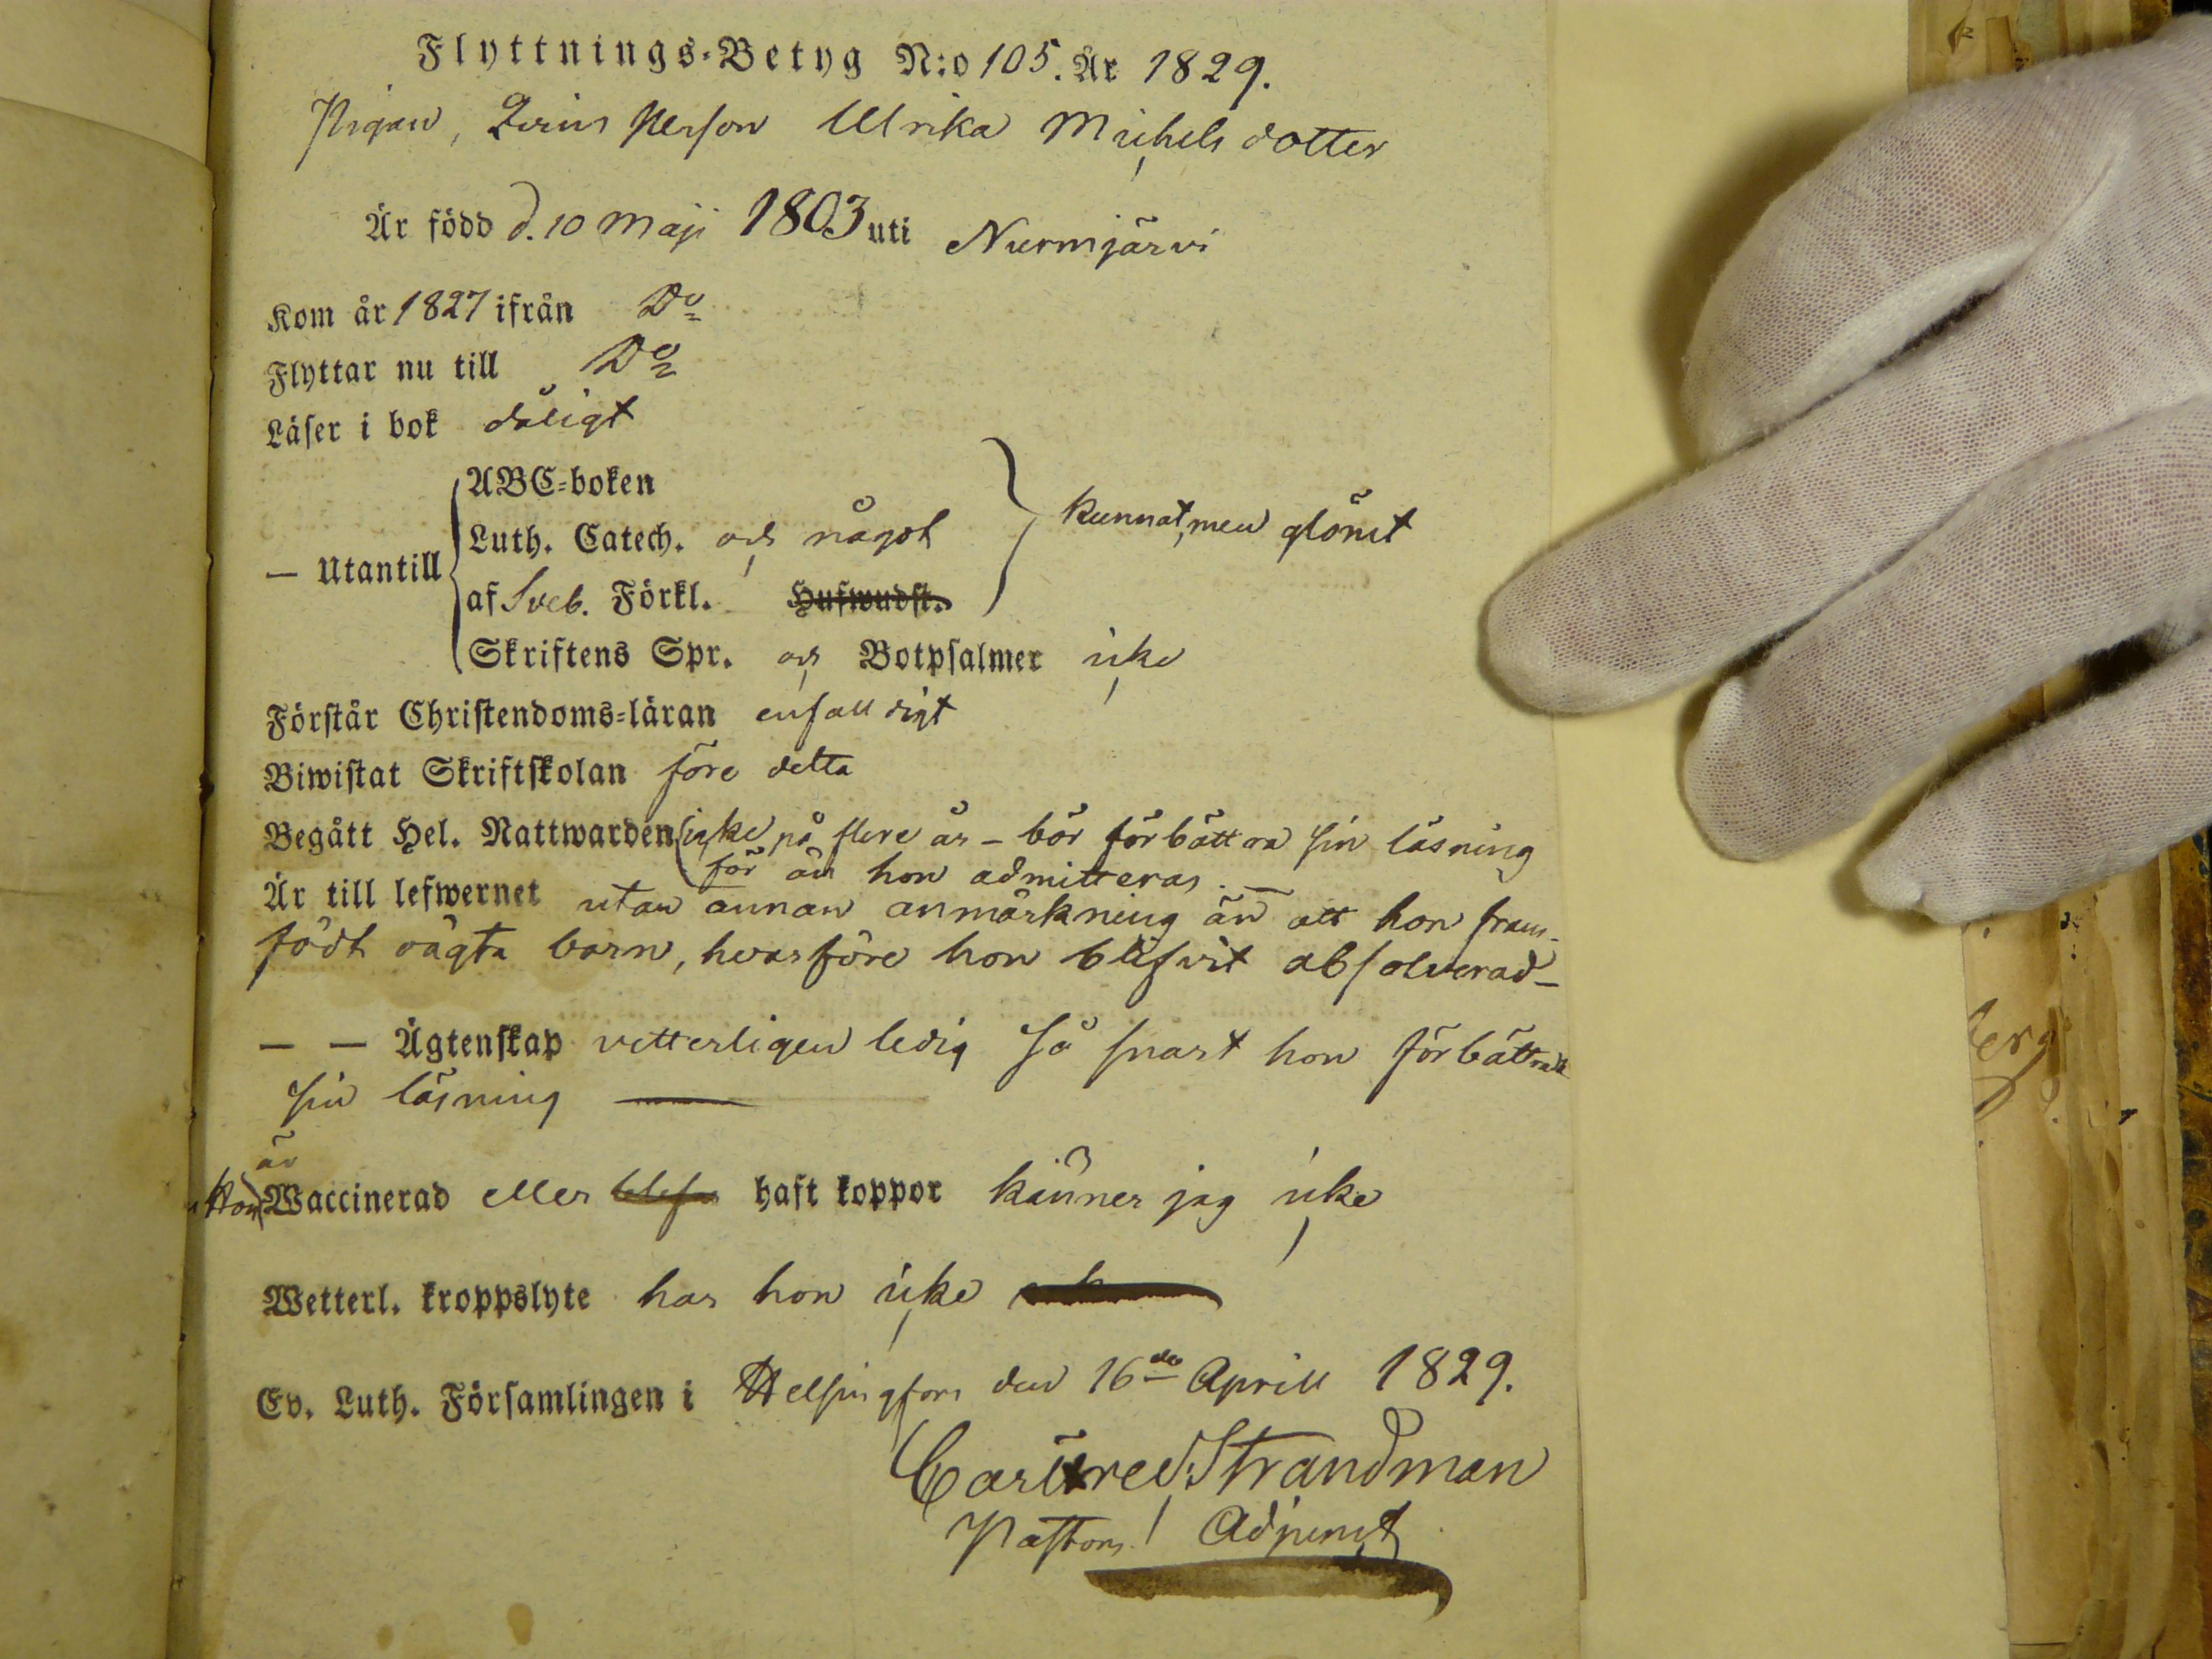 Flyttnings-Betyg N:o 105. År 1829.
Pigan, Qvins Person Ulrika Michelsdotter
Är född d. 10 Maji 1803 uti Nurmjärvi
Kom år 1827 ifrån Do
Flyttar nu till Do
Läser i bok dåligt
— Utantill
ABC-boken
Luth. Catech. och något
af Sveb. Förkl. Hufwudst.
kunnat, men glömt
Skriftens Spr. och Botpsalmer icke
Förstår Christendoms-läran enfalldigt
Biwistat Skriftskolan före detta
Begått Hel. Nattwarden icke på flere år – bör förbättra sin läsning
för än hon admitteras. —
Är till lefwernet utan annan anmärkning än att hon fram-
födt oägta barn, hvarföre hon blifvit absolverad –
— — Ägtenskap vetterligen ledig så snart hon förbättrat
sin läsning —
är
Hon Waccinerad eller haft koppor känner jag icke
Wetterl. kroppslyte har hon icke
Ev. Luth. Församlingen i Helsingfors den 16de Aprill 1829.
Strandman
Pastors Adjunct
erg